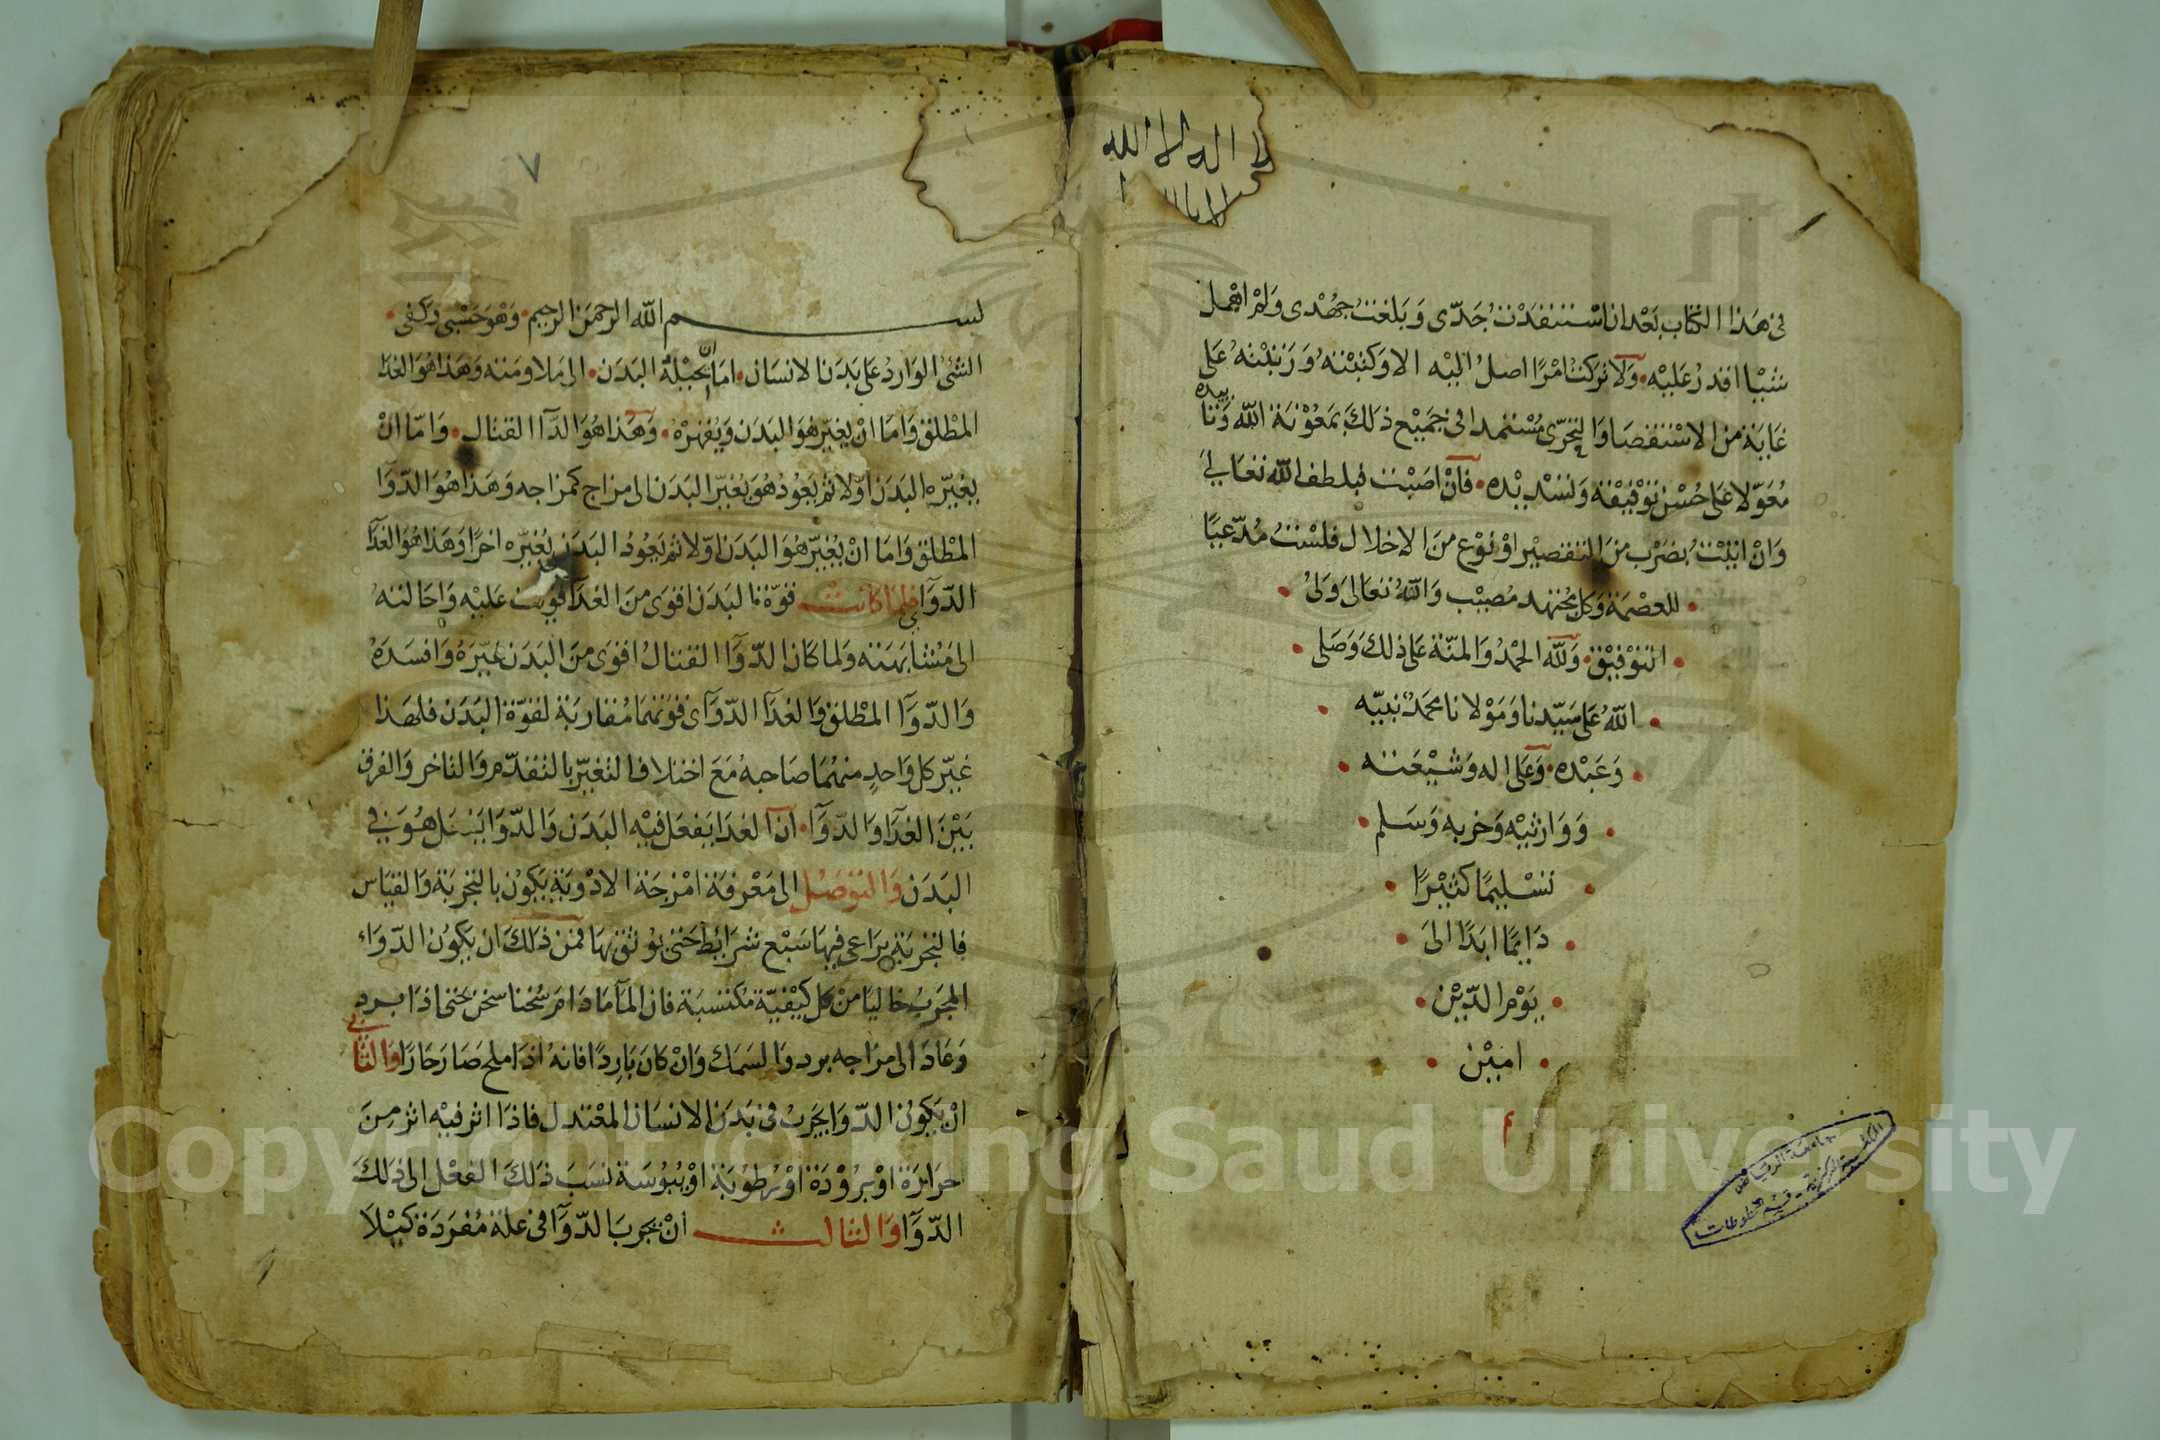 لا اله الا الله
في هذا الكتاب بعد ان استنفدت جدّي وبلغت جهدي ولم اهمل
شيا اقدر عليه ولا تركت امرا اصل اليه الا وكتبته ورتبته على
غاية من الاستقصا والتحرّي مستمدا في جميع ذلك بمعونة الله
بيده
معوّلا على حسن توفيقه وتسديده فان اصبت فبلطف الله تعالى
وان اتيت بضرب من التقصير او نوع من الاخلال فلست مدّعيا
للعصمة وكل مجتهد مصيب والله تعالى ولى
التوفيق ولله الحمد والمنّة على ذلك وصلى
الله على سيّدنا ومولانا محمد نبيّه
وعبده وعلى اله وشيعته
ووارثيه وحزبه وسلم
تسليما كثيرا
دايما ابدا الى
يوم الدّين
امين
م
جامعة الرياض
المكتبة المركزية - قسم المخطوطات
٧
بسم الله الرحمن الرحيم وهو حسبي وكفى
الشئ الوارد على بدن الانسان اما ان يحيله البدن الى ملاومته وهذا هو الغذا
المطلق واما ان يغيّر هو البدن ويقهره وهذا هو الدّآ القتال وامّا ان
يغيّره البدن اوّلا ثم يعود هو يغيّر البدن الى مزاج كمزاجه وهذا هو الدّوآ
المطلق واما ان يغيّر هو البدن اوّلا ثم يعود البدن يغيّره اخرا وهذا هو الغذآ
الدّوآي فلما كانت قوّة البدن اقوى من الغذآ قويت عليه واحالته
الى مشابهته ولما كان الدّوآ القتال اقوى من البدن غيّره وافسده
والدّوآ المطلق والغذآ الدّوآى قوتهما مقاربة لقوّة البدن فلهذا
غيّر كل واحد منهما صاحبه مع اختلاف التغيّر بالتقدّم والتاخر والفرق
بين الغذا والدّوآ ان الغذا يفعل فيه البدن والدّوا يفعل هو في
البدن والتوصل الى معرفة امزجة الادوية يكون بالتجربة والقياس
فالتجربة يراعى فيها سبع شرائط حتى يوثق بها فمن ذلك ان يكون الدّواء
المجرب خاليا من كل كيفيّة مكتسبة فان المآ ما دام سخنا سخن حتى اذا برد
وعاد الى مزاجه برد والسمك وان كان باردا فانه اذا ملح صار حارا والثاني
ان يكون الدّوا يجرب في بدن الانسان المعتدل فاذا اثر فيه اثر من
حرارة او برودة او رطوبة او يبوسة نسب ذلك الفعل الى ذلك
الدّوآ والثالث ان يجرب الدّوآ في علة مفردة كيلا
Copyright © King Saud University